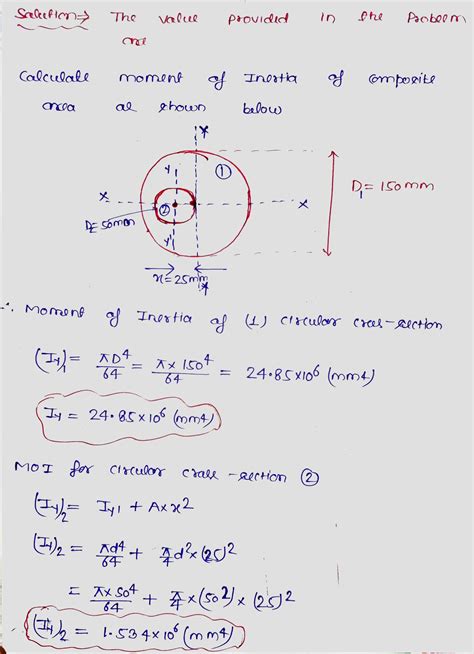 Solution ⇒ The value provided in the Problem
are
Calculate moment of Inertia of composite
area as shown below
Y
Y'
①
X
X
②
D₁ = 150mm
D=50mm
Y'
x=25mm
Y
∴ Moment of Inertia of (1) circular cross-section
(I_Y)₁ = πD⁴/64 = π×150⁴/64 = 24.85×10⁶ (mm4)
I_Y = 24.85×10⁶ (mm4)
MOI for circular cross-section ②
(I_Y)₂ = I_Y1 + A×x²
(I_Y)₂ = πd⁴/64 + π/4 d²×(25)²
= π×50⁴/64 + π/4×(50²)×(25)²
(I_Y)₂ = 1.534×10⁶ (mm4)